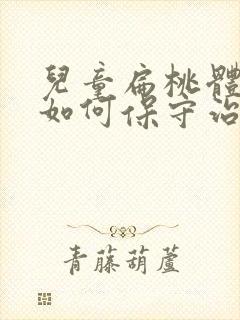 兒童扁桃體
如何保守治
青藤葫蘆